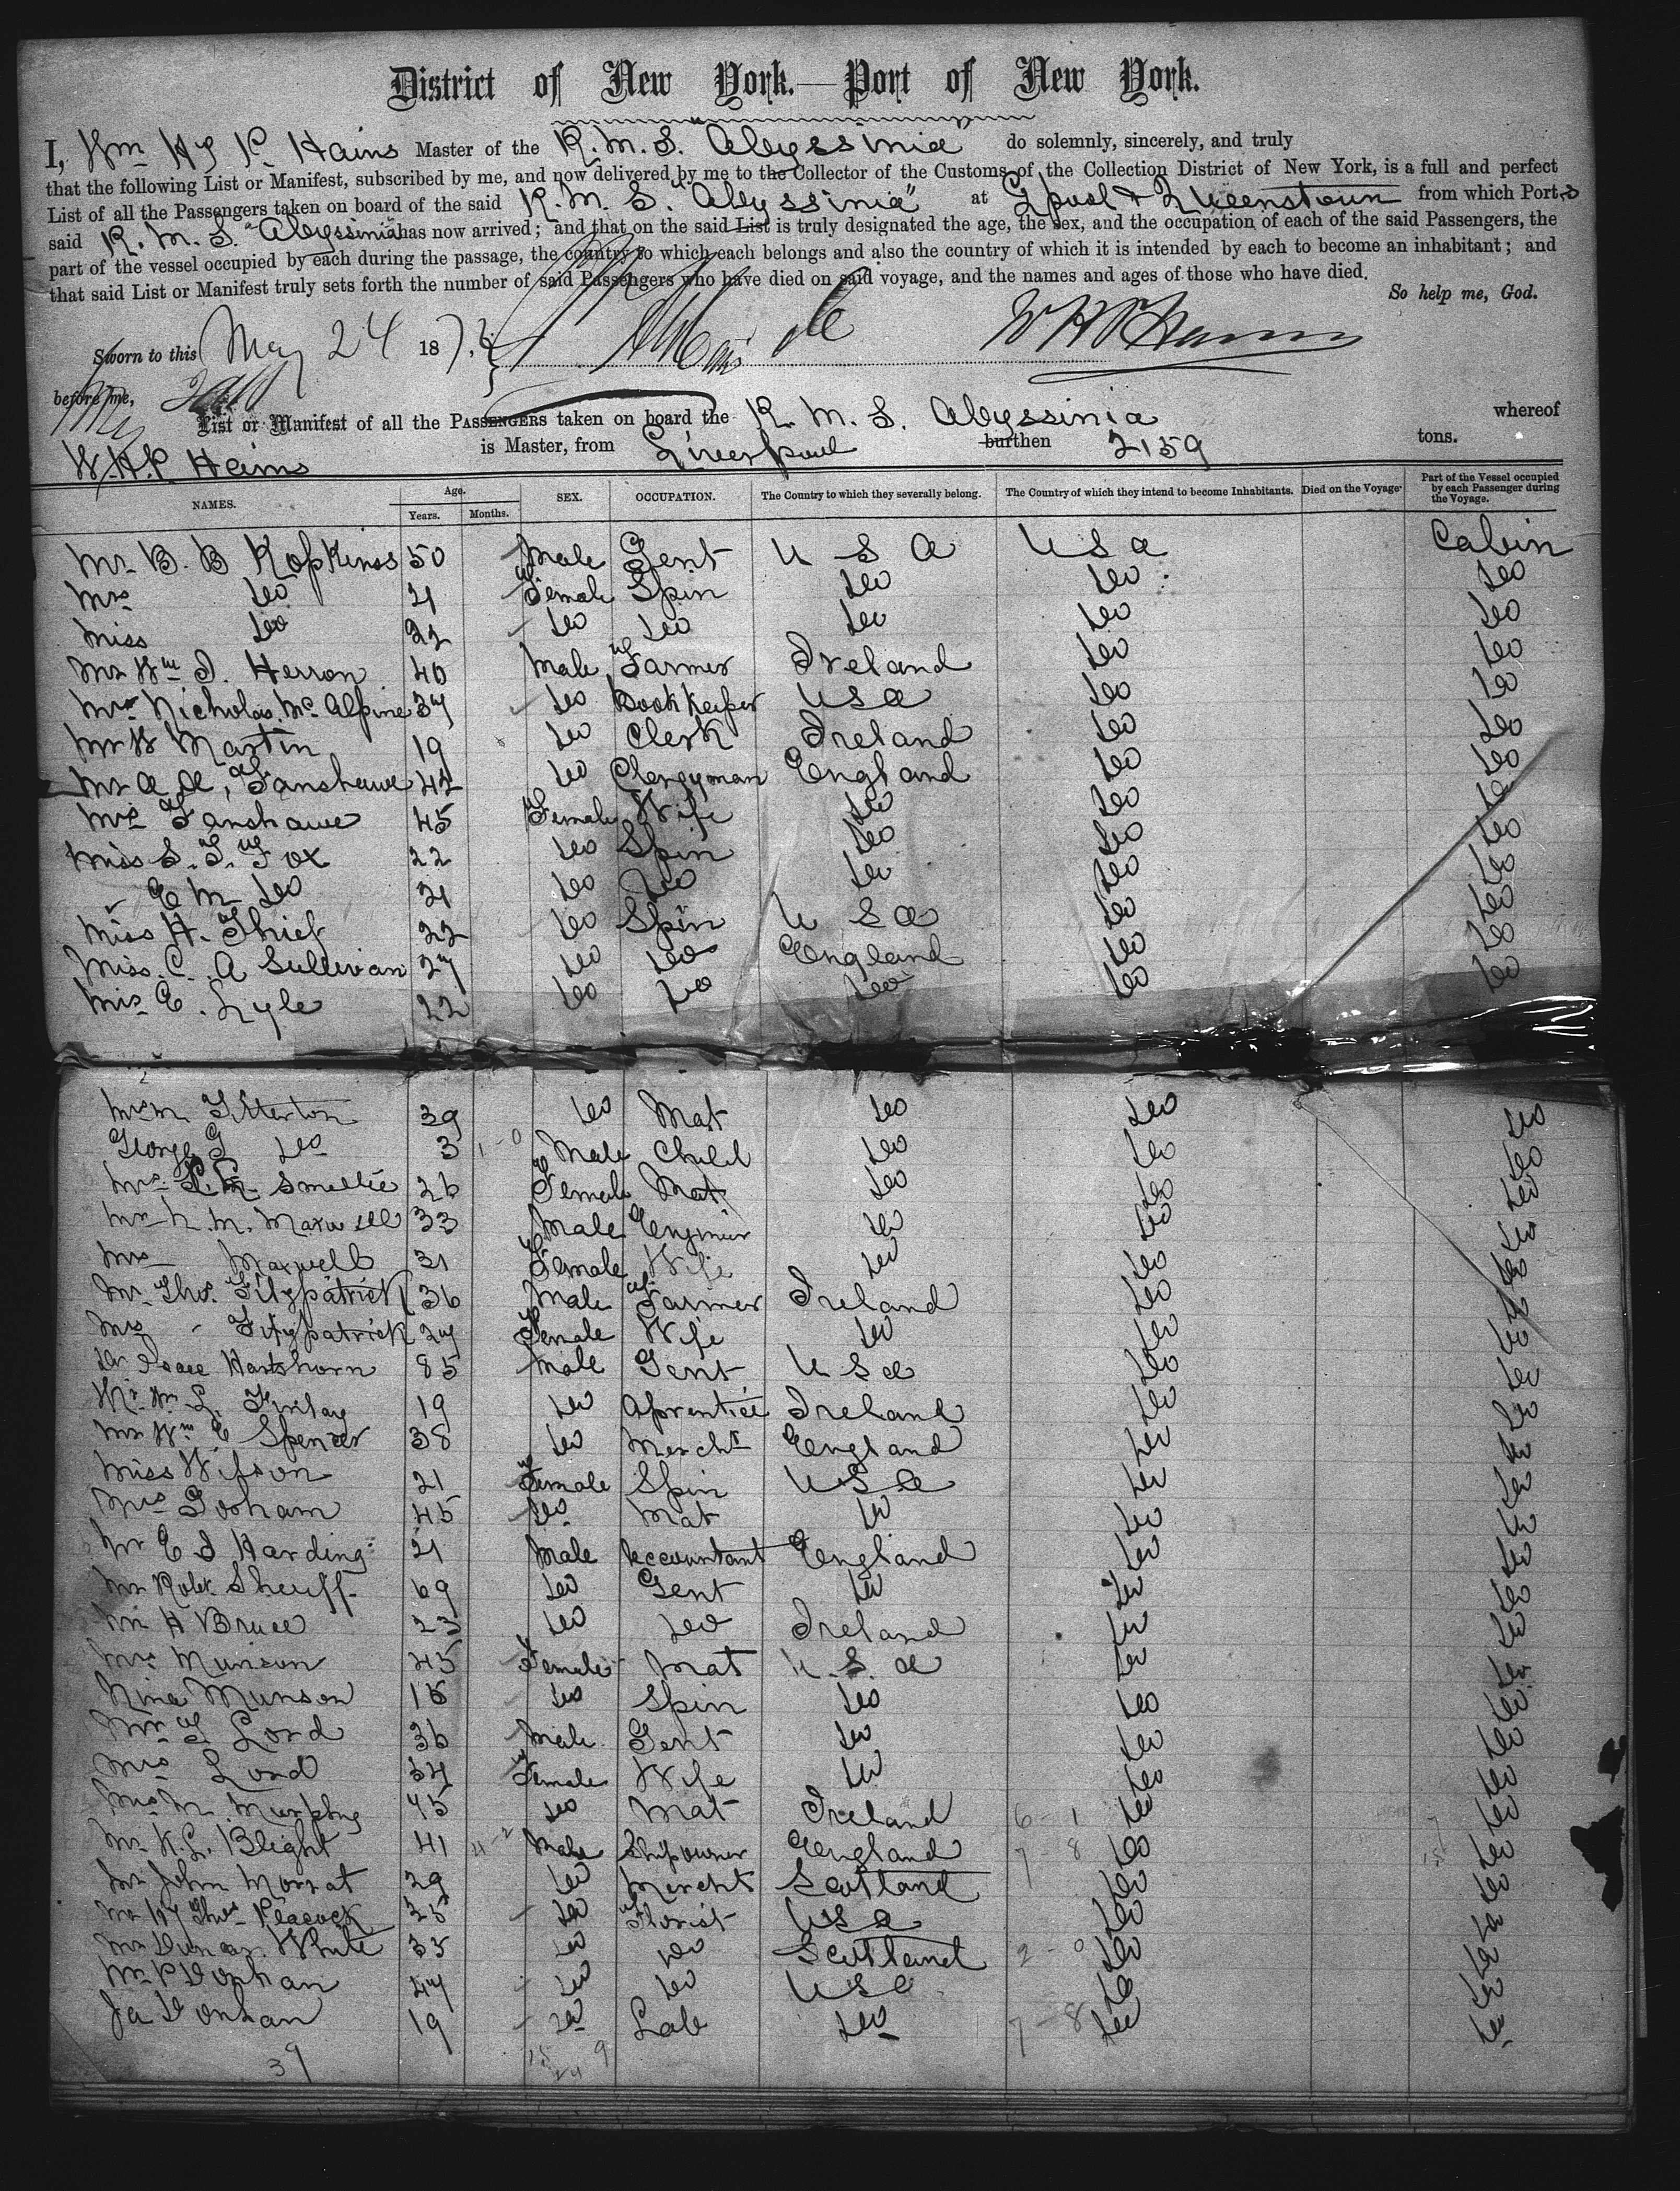 District of New York.—Port of New York.
I, Wm H P Hains Master of the R. M. S. "Abyssinia" do solemnly, sincerely, and truly
that the following List or Manifest, subscribed by me, and now delivered by me to the Collector of the Customs of the Collection District of New York, is a full and perfect
List of all the Passengers taken on board of the said R. M. S. "Abyssinia" at Lpool & Queenstown from which Port s
said R. M. S. "Abyssinia" has now arrived; and that on the said List is truly designated the age, the sex, and the occupation of each of the said Passengers, the
part of the vessel occupied by each during the passage, the country to which each belongs and also the country of which it is intended by each to become an inhabitant; and
that said List or Manifest truly sets forth the number of said Passengers who have died on said voyage, and the names and ages of those who have died.
So help me, God.
Sworn to this May 24 187 W H P Hains
before me,
List or Manifest of all the PASSENGERS taken on board the R. M. S. Abyssinia whereof
W. H. P. Hains is Master, from Liverpool burthen 2159 tons.
NAMES. Age. Years. Months. SEX. OCCUPATION. The Country to which they severally belong. The Country of which they intend to become Inhabitants. Died on the Voyage. Part of the Vessel occupied by each Passenger during the Voyage.
Mr B. B Hopkins 50 Male Gent U S A U S A Cabin
Mrs Do 21 Female Spin Do Do Do
Miss Do 22 Do Do Do Do Do
Mr Wm J. Herron 40 Male Farmer Ireland Do Do
Mr Nicholas Mc Alpine 37 Do Bookkeeper U S A Do Do
Mr W Martin 19 Do Clerk Ireland Do Do
Mr A A, Fanshawe 42 Do Clergyman England Do Do
Mrs Fanshawe 45 Female Wife Do Do Do
Miss S. F. Fox 22 Do Spin Do Do Do
" E M Do 21 Do Do Do Do Do
Miss H. Thief 22 Do Spin U S A Do Do
Miss. C. A Sullivan 27 Do Do England Do Do
Mis E. Lyle 22 Do Do Do Do Do
Mrs M Titterton 39 Do Mat Do Do Do
George G Do 3 1-0 Male Child Do Do Do
Mrs Smellie 26 Female Mat Do Do Do
Mr N. M. Maxwell 33 Male Enginier Do Do Do
Mrs Maxwell 31 Female Wife Do Do Do
Mr Thos. Fitzpatrick 36 Male Farmer Ireland Do Do
Mrs " Fitzpatrick 27 Female Wife Do Do Do
Dr Isaac Hartshorn 85 Male Gent U S A Do Do
Mr Wm L. Finlay 19 Do Aprentice Ireland Do Do
Mr Wm E Spencer 38 Do Mercht England Do Do
Miss Wilson 21 Female Spin U S A Do Do
Mrs Gorham 45 Do Mat Do Do Do
Mr E J Harding 21 Male Accountant England Do Do
Mr Robt Sheriff 69 Do Gent Do Do Do
Mr H Bruce 23 Do Do Ireland Do Do
Mrs Munson 45 Female Mat U. S. A Do Do
Nina Munson 16 Do Spin Do Do Do
Mr F Lord 36 Male Gent Do Do Do
Mrs Lord 34 Female Wife Do Do Do
Mrs M. Murphy 45 Do Mat Ireland 6-1 Do Do
Mr K. L. Blight 41 11-2 Male Shipowner England 7-8 Do Do
Mr John Morrat 29 Do Mercht Scotland Do Do
Mr Hy Thos Peacock 25 Do Florist U S A Do Do
Mr Duncan White 35 Do Do Scotland 2-0 Do Do
Mr P Donhan 47 Do Do U S A Do Do
Ja Donhan 19 Do Lab Do 7-8 Do Do
39